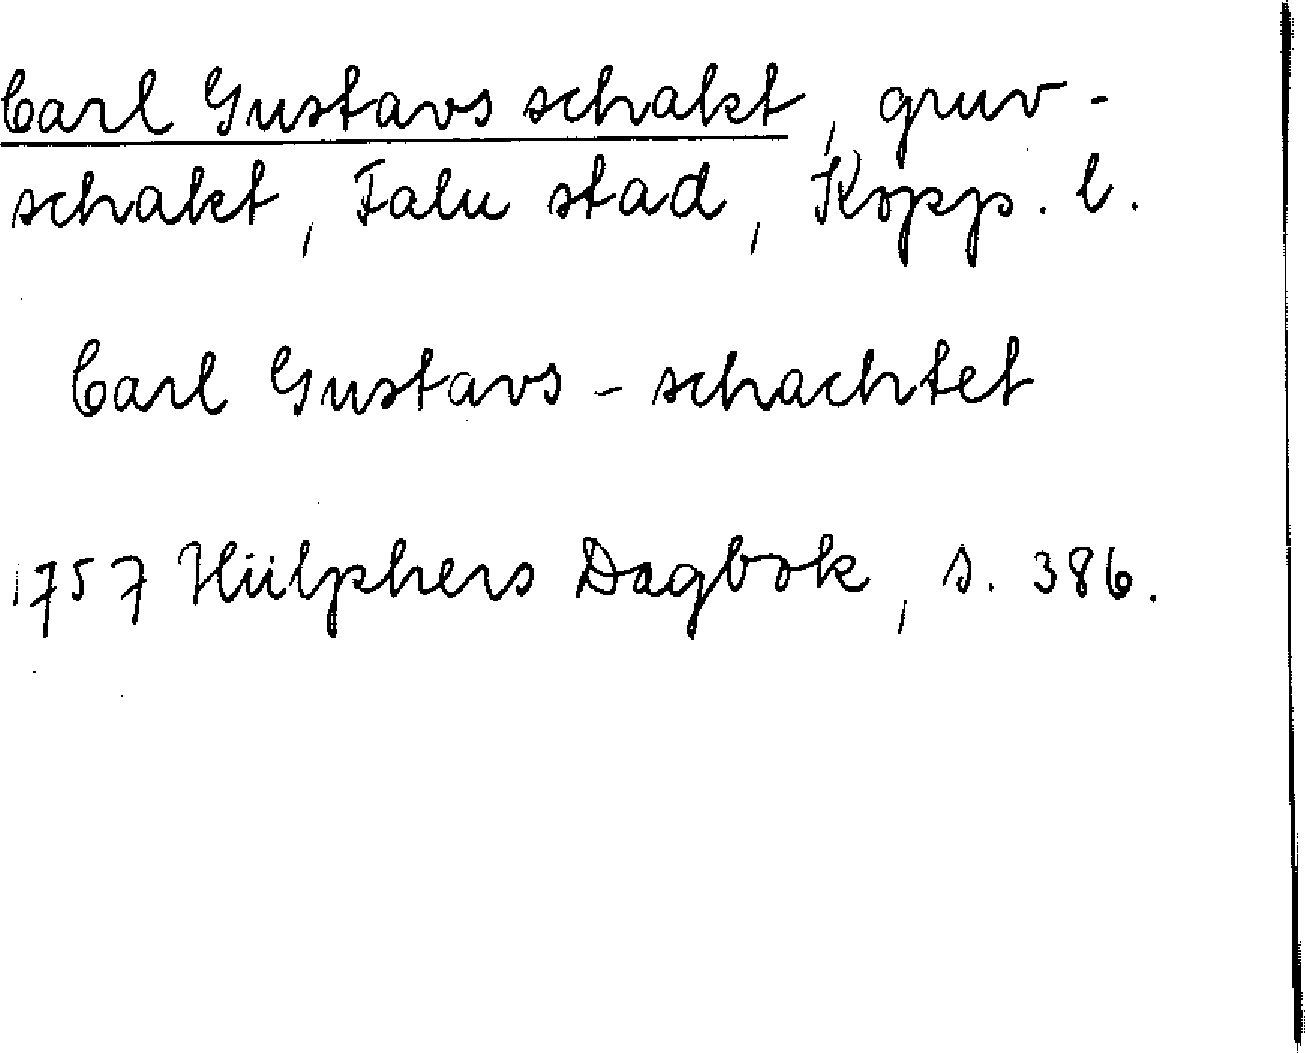 Carl Gustavs schakt, gruv-
schakt, Falu stad, Kopp. l.
Carl Gustavs-schachtet
1757 Hülphers Dagbok, s. 386.